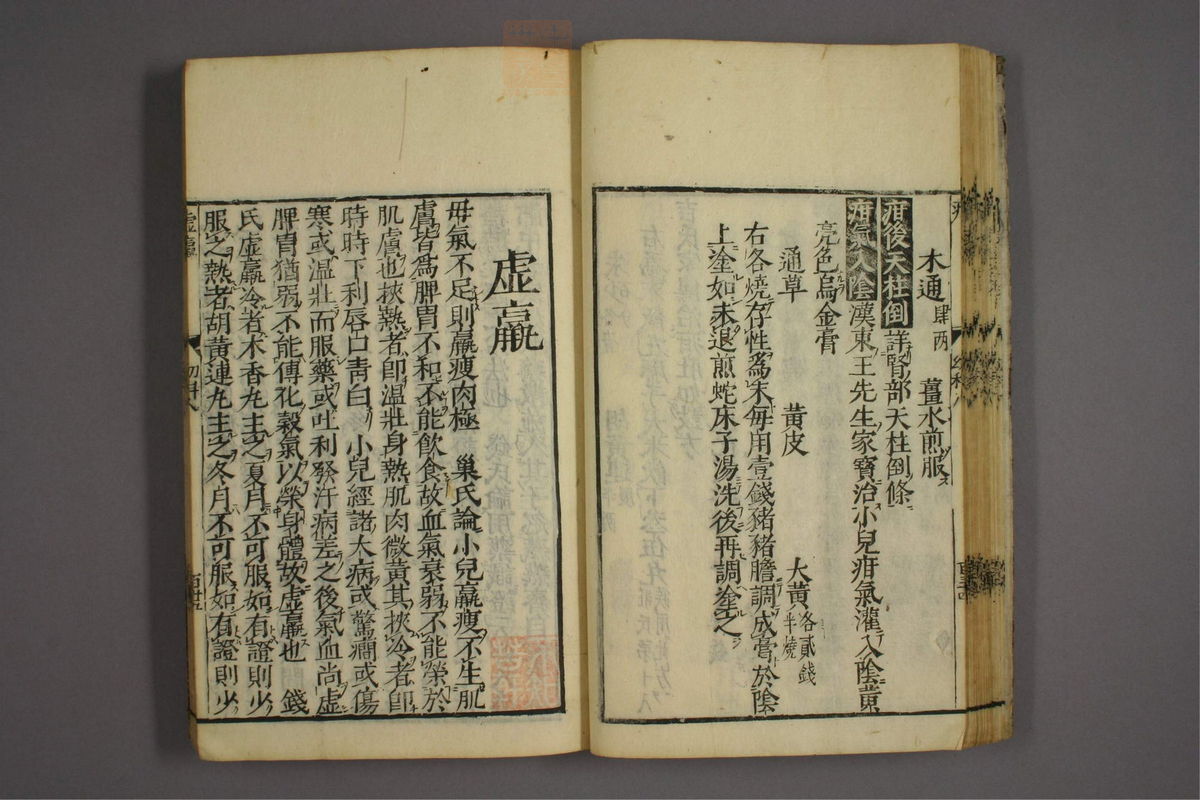 木通肆両　薑水煎服
疳後天柱倒詳腎部天柱倒條
疳氣入陰漢東王先生家寶治小兒疳氣灌入陰黄
亮色烏金膏
通草　黄皮　大黄各貳錢半燒
右各燒存性爲末毎用壹錢豬豬膽調成膏於陰
上塗如未退煎蛇床子湯洗後再調塗之
虚羸
毋氣不足則羸瘦肉極　巢氏論小兒羸瘦不生肌
膚皆爲脾胃不和不能飲食故血氣衰弱不能榮於
肌膚也挾熱者即温壯身熱肌肉微黄其挾冷者即
時時下利唇口青白　小兒經諸大病或驚癇或傷
寒或温壯而服藥或吐利發汗病差之後氣血尚虚
脾胃猶弱不能傳化穀氣以榮身體故虚羸也　錢
氏虚羸冷者木香丸主之夏月不可服如有證則少
服之熱者胡黄連丸主之冬月不可服如有證則少
虚羸